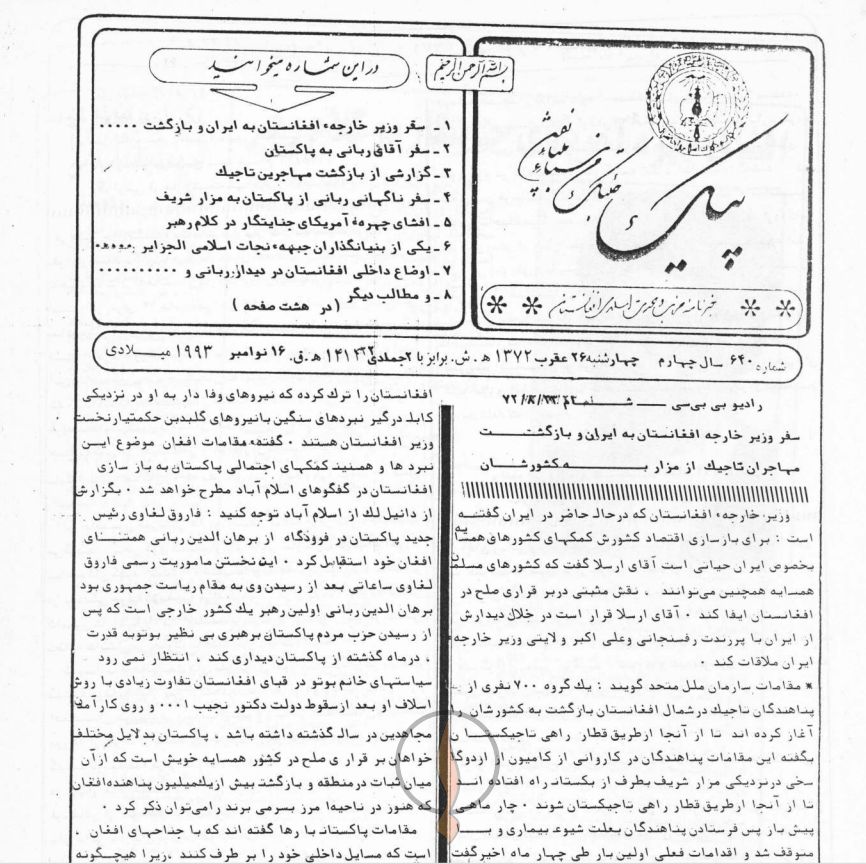 بسم الله الرحمن الرحیم
پیام
خبرنامه
در این شماره میخوانید
۱ - سفر وزیر خارجهء افغانستان به ایران و بازگشت .....
۲ - سفر آقای ربانی به پاکستان
۳ - گزارشی از بازگشت مهاجرین تاجیک
۴ - سفر ناگهانی ربانی از پاکستان به مزار شریف
۵ - افشای چهرهء آمریکای جنایتکار در کلام رهبر
۶ - یکی از بنیانگذاران جبههء نجات اسلامی الجزایر .....
۷ - اوضاع داخلی افغانستان در دیدار ربانی و ..........
۸ - و مطالب دیگر
( در هشت صفحه )
شماره ۶۴۰ سال چهارم چهارشنبه ۲۶ عقرب ۱۳۷۲ ه . ش . برابر با ۲ جمادی ۱۴۱۴ ه . ق . ۱۶ نوامبر ۱۹۹۳ میلادی
رادیو بی بی سی
سفر وزیر خارجه افغانستان به ایران و بازگشت
مهاجران تاجیک از مزار به کشورشان
وزیر خارجهء افغانستان که در حال حاضر در ایران گفته
است : برای بازسازی اقتصاد کشورش کمکهای کشورهای همسایه
بخصوص ایران حیاتی است آقای ارسلا گفت که کشورهای مسلمان
همسایه همچنین می‌توانند ، نقش مثبتی در بر قراری صلح در
افغانستان ایفا کند . آقای ارسلا قرار است در خلال دیدارش
از ایران با پرزیدنت رفسنجانی وعلی اکبر ولایتی وزیر خارجهء
ایران ملاقات کند .
* مقامات سازمان ملل متحد گویند : یک گروه ۷۰۰ نفری از
پناهندگان تاجیک در شمال افغانستان بازگشت به کشورشان را
آغاز کرده اند تا از آنجا از طریق قطار راهی تاجیکستان
بگفته این مقامات پناهندگان در کاروانی از کامیون از اردوگاه
سخی در نزدیکی مزار شریف بطرف ازبکستان راه افتاده اند
تا از آنجا از طریق قطار راهی تاجیکستان شوند . چار ماهی
پیش باز پس فرستادن پناهندگان بعلت شیوع بیماری و
متوقف شد و اقدامات فعلی اولین بار طی چهار ماه اخیر گفت
افغانستان را ترک کرده که نیروهای وفا دار به او در نزدیکی
کابل درگیر نبردهای سنگین با نیروهای گلبدین حکمتیار نخست
وزیر افغانستان هستند . گفتهء مقامات افغان موضوع این
نبرد ها و همنید کمکهای اجتمالی پاکستان به باز سازی
افغانستان در گفگوهای اسلام آباد مطرح خواهد شد . بگزارش
از دانیل لک از اسلام آباد توجه کنید : فاروق لغاوی رئیس
جدید پاکستان در فرودگاه از برهان الدین ربانی همتای
افغان خود استقبال کرد . این نخستن ماموریت رسمی فاروق
لغاوی ساعاتی بعد از رسیدن وی به مقام ریاست جمهوری بود
برهان الدین ربانی اولین رهبر یک کشور خارجی است که پس
از رسیدن حزب مردم پاکستان برهبری بی نظیر بوتو به قدرت
، در ماه گذشته از پاکستان دیداری کند ، انتظار نمی رود
سیاستهای خانم بوتو در قبای افغانستان تفاوت زیادی با روش
اسلاف او بعد از سقوط دولت دکتور نجیب ۰۰۰۱ و روی کار آمدن
مجاهدین در سال گذشته داشته باشد ، پاکستان بدلایل مختلف
خواهان بر قراری صلح در کشور همسایه خویش است که از آن
میان ثبات در منطقه و بازگشت بیش از یک میلیون پناهنده افغان
که هنوز در ناحیهء مرز بسر می برند را می‌توان ذکر کرد .
مقامات پاکستان با رها گفته اند که با جناحهای افغان ،
است که مسایل داخلی خود را بر طرف کنند ، زیرا هیچگونه